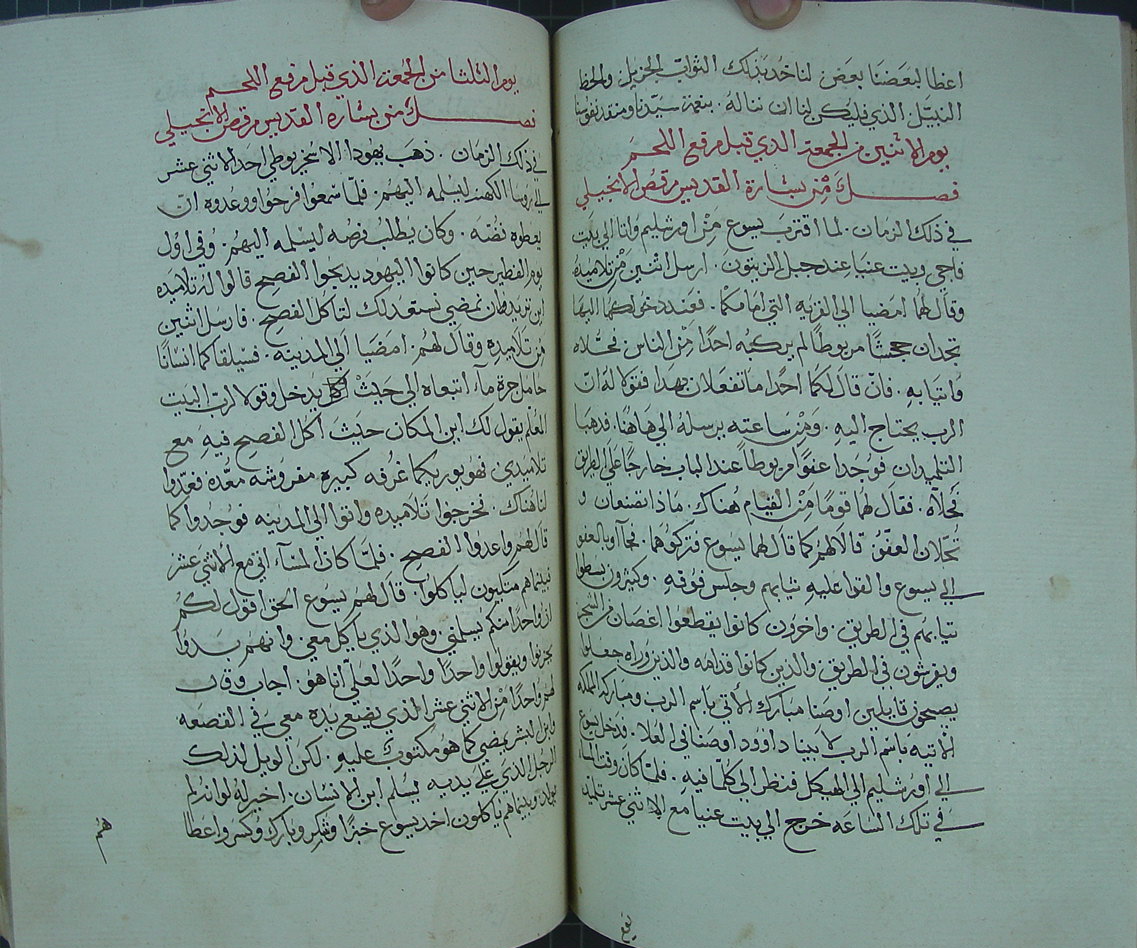 اعطا لبعضنا بعض لناخد بذلك الثواب الجزيل والحظ
النبيّل الذي فليكن لنا ان نناله. بنعمة سيّدنا ومنقد نفوسنا
يوم الاثنين من الجمعة الدي قبل مرفع اللحم
فصل من بشارة القديس مرقص الانجيلي
في ذلك الزمان. لما اقترب يسوع من اورشليم واتا الي بيت
فاجي وبيت عنيا عند جبل الزيتون. ارسل اثنين من تلاميده
وقال لهما امضيا الي القريه التي امامكما. فعند دخولكما اليها
تجدان جحشًا مربوطًا لم يركبه احدًا من الناس. فحلاه
واتيا به. فان قال لكما احدًا ما تفعلان بهدا فقولا له ان
الرب يحتاج اليه. ومن ساعته يرسله الي هاهنا. فدهبا
التلميدان فوجدا عفوًا مربوطًا عند الباب خارجًا علي الطريق
فحلاه. فقال لهما قومًا من القيام هناك. مادا تصنعان و
تحلان العفو. قالا لهم كما قال لهما يسوع فتركوهما. فجآ اوبالعفو
الي يسوع والقوا عليه ثيابهم وجلس فوقه. وكثيرون بسطوا
ثيابهم في الطريق. واخرون كانوا يقطعوا اغصان من الشجر
ويفرشون في الطريق والذين كانوا قدامه والذين وراه جعلوا
يصيحون قايلين اوصنا مبارك الاتي باسم الرب ومباركه المملكه
الاتيه باسم الرب لابينا داوود اوصنا في العلا. فدخل يسوع
الي اورشليم الي الهيكل فنظر الي كلما فيه. فلما كان وقت المسا
في تلك الساعه خرج الي بيت عنيا مع الاثني عشر تلميد
يوم التلثا من الجمعة الذي قبل مرفع اللحم
فصل من بشارة القديس مرقص الانجيلي
في ذلك الزمان. ذهب يهودا الاسخريوطي احد الاثني عشر
الي روسا الكهنه ليسلمه اليهم. فلمّا سمعوا فرحوا ووعدوه ان
يعطوه فضه. وكان يطلب فرصه ليسلمه اليهم. وفي اول
يوم الفطير حين كانوا اليهود يدبحوا الفصح قالوا له تلاميده
اين تريد ان نمضي نستعد لك لتاكل الفصح. فارسل اثنين
من تلاميده وقال لهم. امضيا الي المدينه. فسيلقاكما انسانًا
حامل جرة مآ. اتبعاه الي حيث يدخل وقولا لرب البيت
المعلم يقول لك اين المكان حيث اكل الفصح فيه مع
تلاميدي. فهو يوريكما غرفه كبيره مفروشه معدّه فعدّوا
لنا هناك. فخرجوا تلاميده واتوا الي المدينه فوجدوا كما
قال لهم واعدوا الفصح. فلمّا كان المسآ اتي مع الاثني عشر
فبينما هم متكيون لياكلوا. قال لهم يسوع الحق اقول لكم
ان واحدًا منكم يسلمني وهو الذي ياكل معي. وانهم بدوا
يحزنوا ويقولوا واحدًا واحدًا لعلّي انا هو. اجاب وقال
لهم واحدًا من الاثني عشر الذي يضع يده معي في القصعه
وابن البشر يمضي كما هو مكتوب عليه. لكن الويل لذلك
الرجل الدي علي يديه يسلم ابن الانسان. اخير له لو انه لم
يولد. وبينما هم ياكلون اخد يسوع خبزًا وشكر وبارك وكسر واعطا
هم